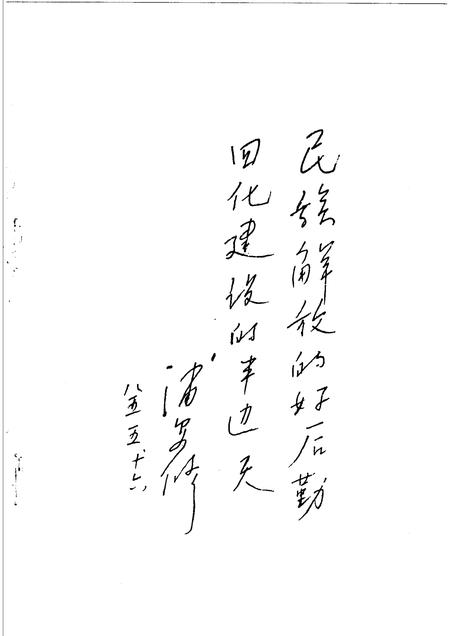 民族解放的好后勤
四化建设的半边天
浦安修
八五五十六